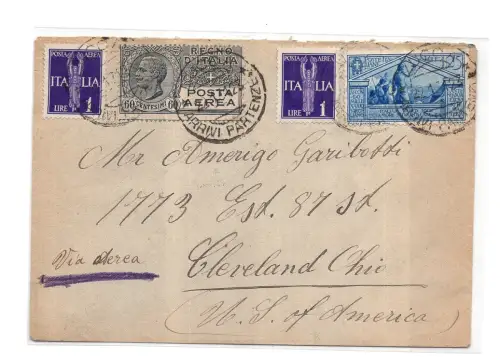 POSTA AEREA
ITALIA
LIRE 1
REGNO
D'ITALIA
POSTA
AEREA
60 CENTESIMI 60
POSTA AEREA
ITALIA
LIRE 1
ARRIVI PARTENZE
Mr Amerigo Garibotti
1773 Est. 87 st.
Via aerea
Cleveland Ohio
(U. S. of America)